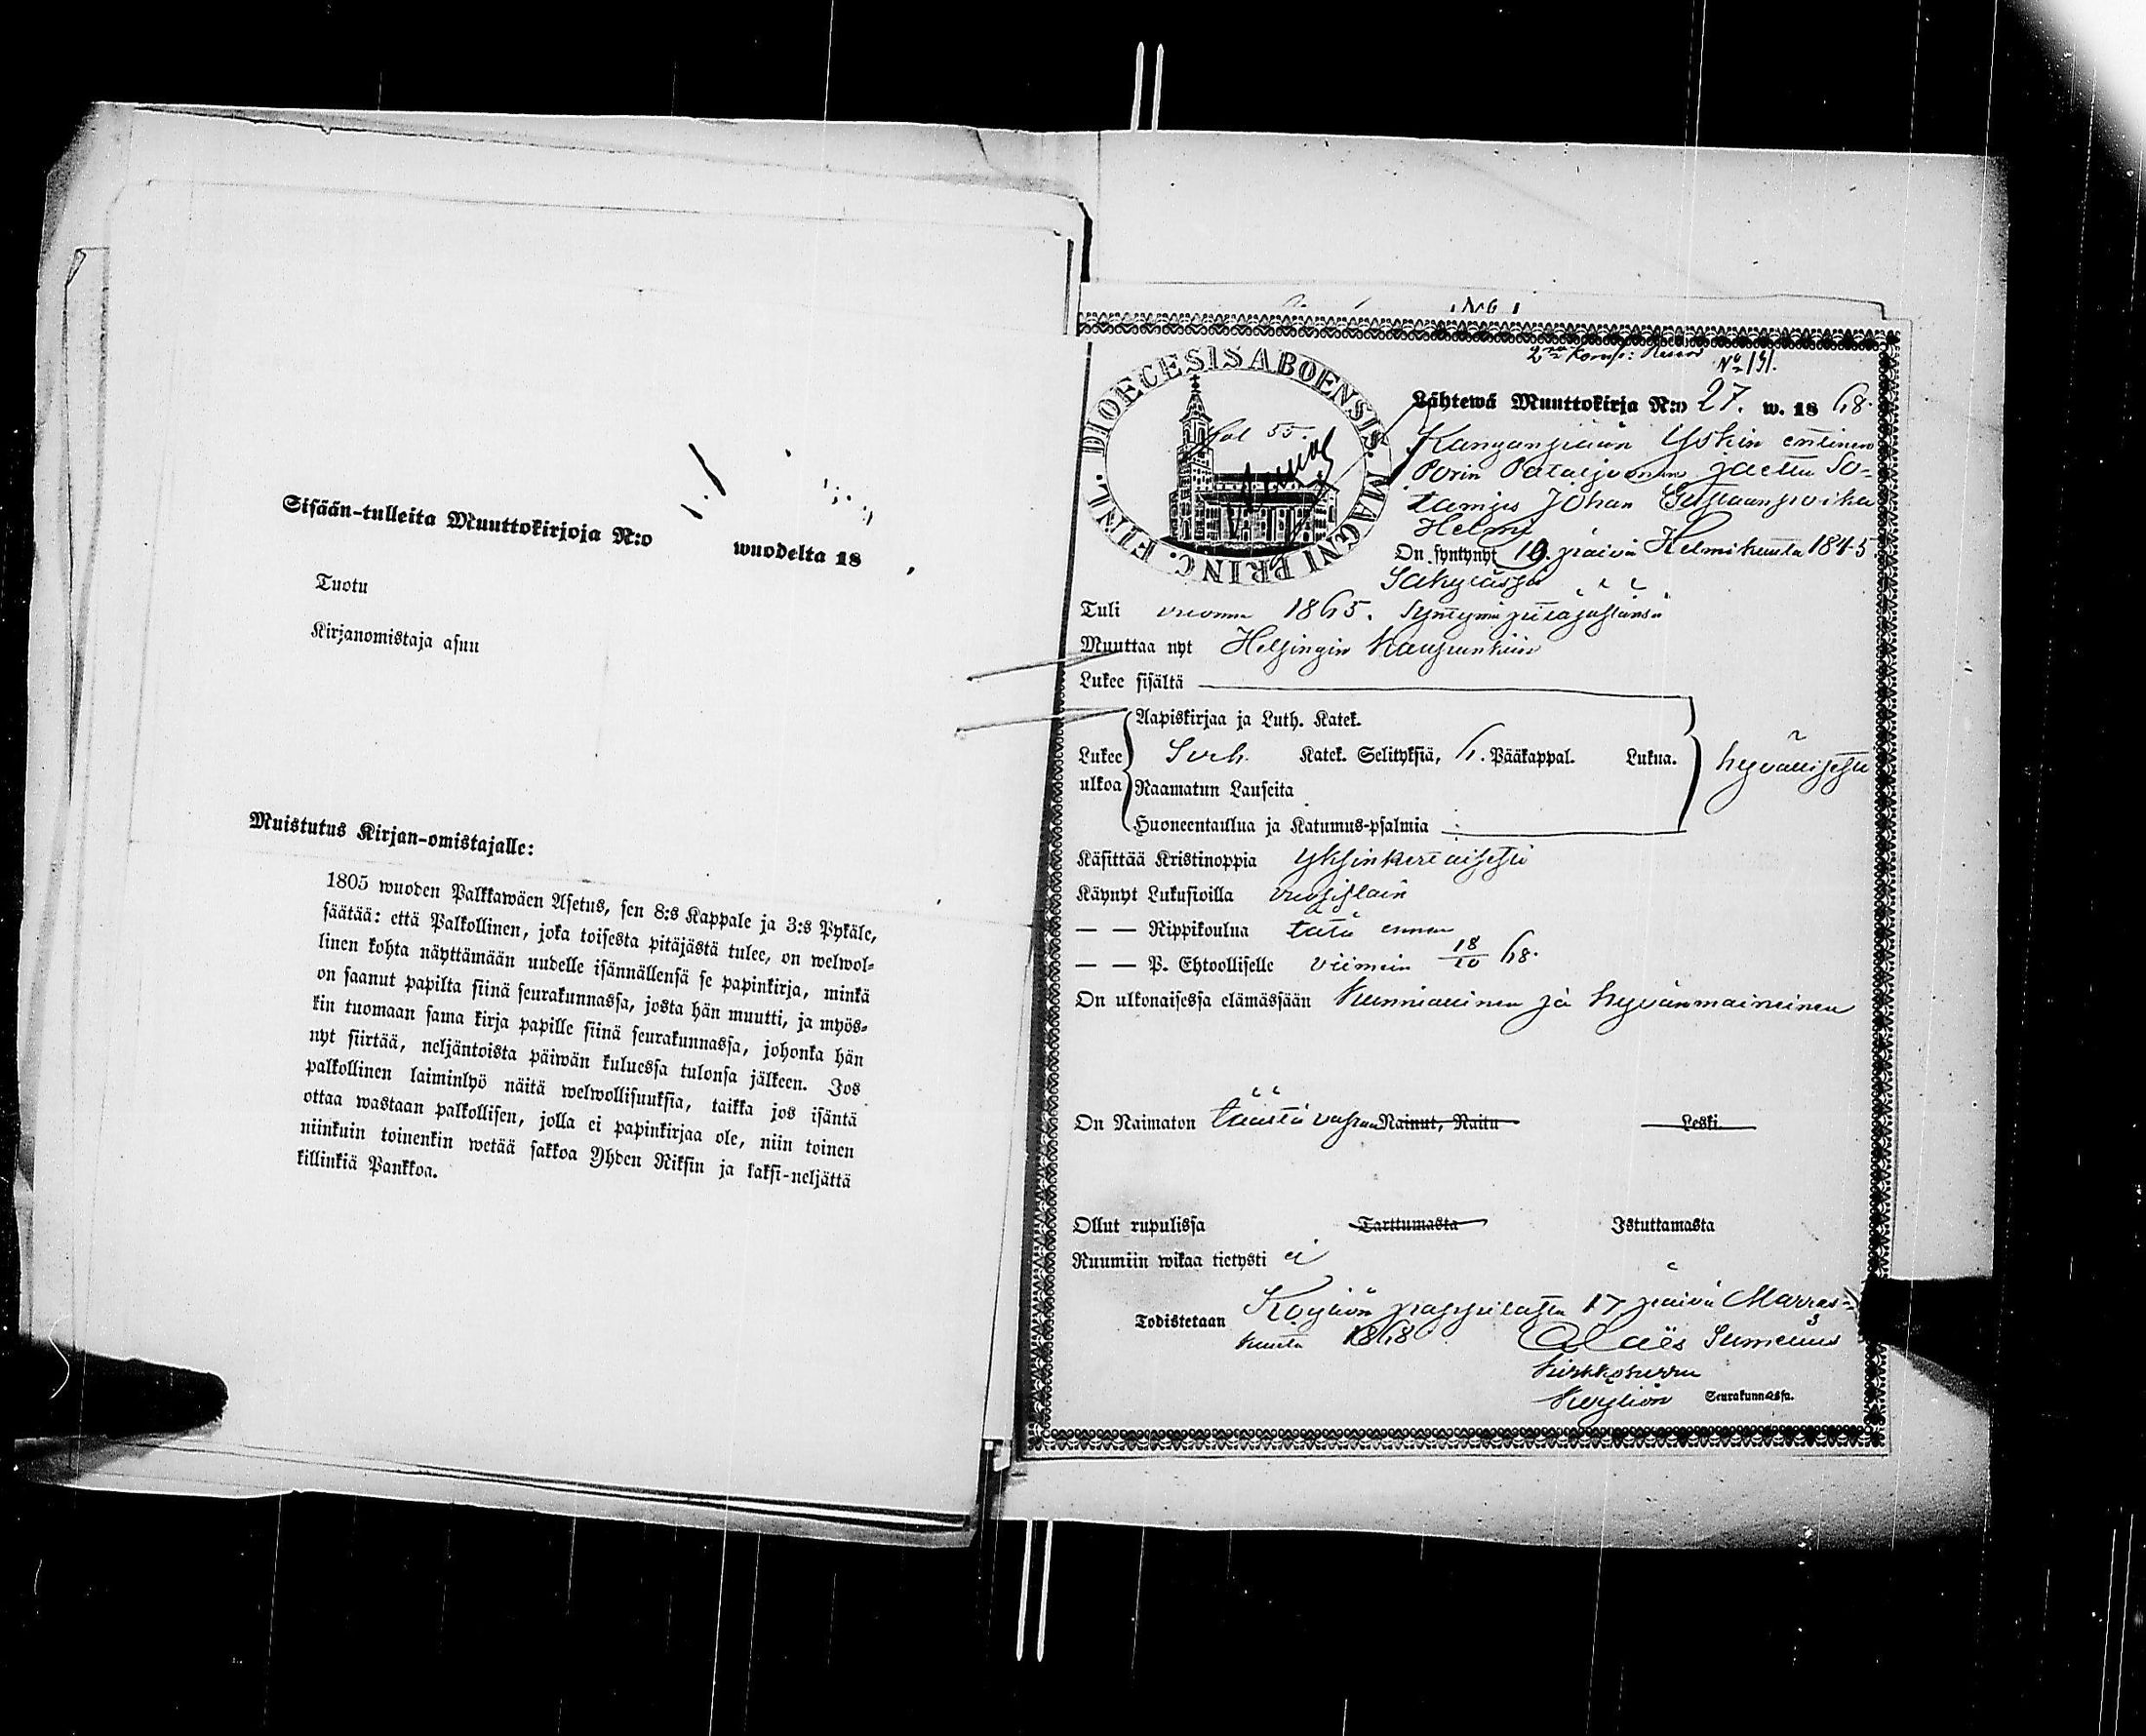 Sisään-tulleita Muuttokirjoja N:o wuodelta 18
Tuotu
Kirjanomistaja asuu
Muistutus Kirjan-omistajalle:
1805 wuoden Palkkawäen Asetus, sen 8:s Kappale ja 3:s Pykäle,
säätää: että Palkollinen, joka toisesta pitäjästä tulee, on welwol-
linen kohta näyttämään uudelle isännällensä se papinkirja, minkä
on saanut papilta siinä seurakunnassa, josta hän muutti, ja myös-
kin tuomaan sama kirja papille siinä seurakunnassa, johonka hän
nyt siirtää, neljäntoista päiwän kuluessa tulonsa jälkeen. Jos
palkollinen laiminlyö näitä welwollisuuksia, taikka jos isäntä
ottaa wastaan palkollisen, jolla ei papinkirjaa ole, niin toinen
niinkuin toinenkin wetää sakkoa Yhden Riksin ja kaksi-neljättä
killinkiä Pankkoa.
No 191.
DIOECESIS ABOENSIS. MAGNI PRINC. FINL.
fol 55.
Lähtewä Muuttokirja N:o 27. w. 18 68.
entinen
Porin Pataljoonan jaettu So-
tamies Johan
Helmi
On syntynyt 10. päivä Helmikuuta 1845
Säkylässä
Tuli vuonna 1865. Syntymäpitäjästänsä
Muuttaa nyt Helsingin kaupunkiin
Lukee sisältä
Aapiskirjaa ja Luth. Katek.
Lukee ulkoa Sveb. Katek. Selityksiä, 6. Pääkappal. Lukua. hyvällisesti
Raamatun Lauseita
Huoneentaulua ja Katumus-psalmia
Käsittää Kristinoppia yksinkertaisesti
Käynyt Lukusioilla vuosittain
— — Rippikoulua tätä ennen
— — P. Ehtoolliselle viimein 18/10 68.
On ulkonaisessa elämässään kunniallinen ja hyvänmaineinen
On Naimaton täästä Nainut, Naitu Leski.
Ollut rupulissa Tarttumasta Istuttamasta
Ruumiin wikaa tietysti ei
Todistetaan Köyliön pappilassa 17 päivä Marras-
kuuta 1868
kirkkoherra
Köyliön Seurakunnassa.